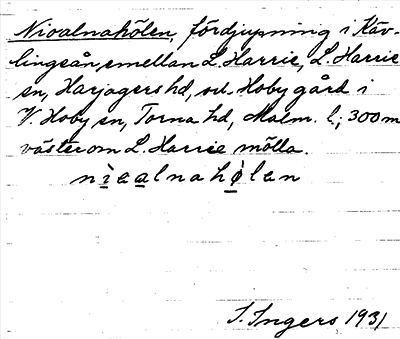 Nioalnahölen, fördjupning i Käv-
lingeån, mellan L. Harrie, L. Harrie
sn, Harjagers hd, och Hoby gård i
V. Hoby sn, Torna hd, Malm. l.; 300 m
väster om L. Harrie mölla.
nìaalnahølan
I. Ingers 1931